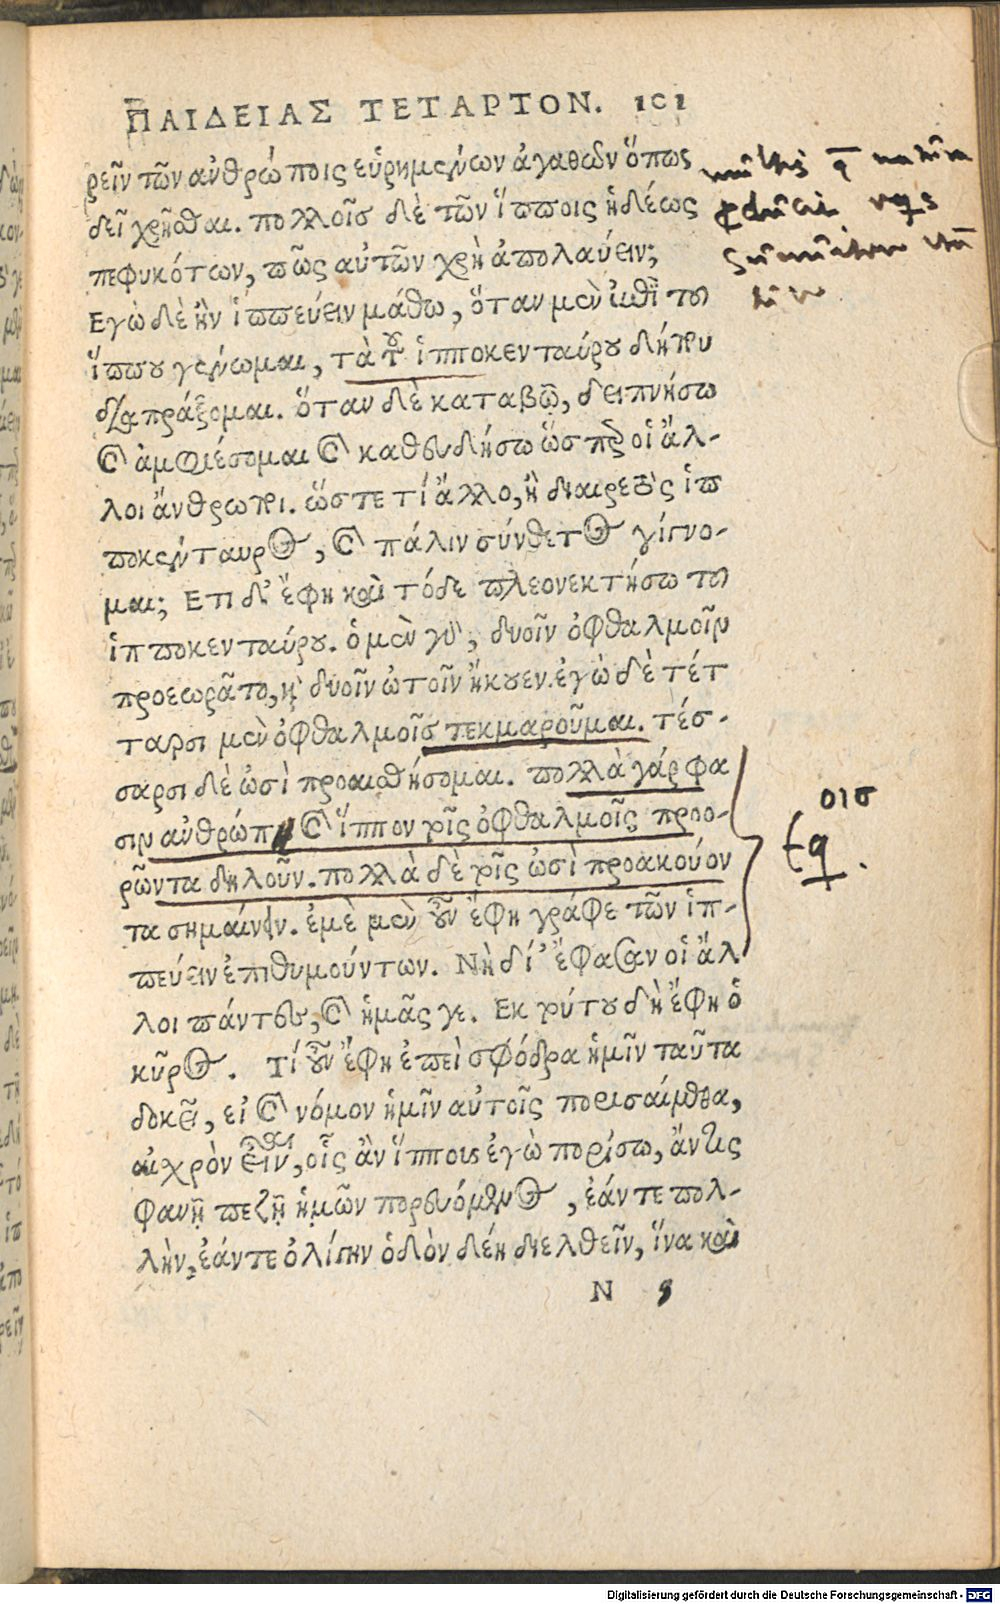 ΠΑΙΔΕΙΑΣ ΤΕΤΑΡΤΟΝ. 101
ρεῖν τῶν ἀνθρώποις εὑρημένων ἀγαθῶν ὅπως
δεῖ χρῆσθαι. πολλοῖς δὲ τῶν ἵπποις ἡδέως
πεφυκότων, πῶς αὐτῶν χρὴ ἀπολαύειν;
Εγὼ δὲ ἢν ἱππεύειν μάθω, ὅταν μὲν ἐπὶ τοῦ
ἵππου γένωμαι, τὰ τοῦ ἱπποκενταύρου δήπου
διαπράξομαι. ὅταν δὲ καταβῶ, δειπνήσω
καὶ ἀμφιέσομαι καὶ καθευδήσω ὥσπερ οἱ ἄλ-
λοι ἄνθρωποι. ὥστε τί ἄλλο, ἢ διαιρετὸς ἱπ
ποκένταυρος, καὶ πάλιν σύνθετος γίγνο-
μαι; Ετι δ' ἔφη καὶ τόδε πλεονεκτήσω τοῦ
ἱπποκενταύρου. ὁ μὲν γὰρ, δυοῖν ὀφθαλμοῖν
προεωρᾶτο, καὶ δυοῖν ὠτοῖν ἤκουεν. ἐγὼ δὲ τέτ
ταρσι μὲν ὀφθαλμοῖς τεκμαροῦμαι. τέσ-
σαρσι δὲ ὠσὶ προαισθήσομαι. πολλὰ γάρ φα
σιν ἀνθρώπ καὶ ἵππον τοῖς ὀφθαλμοῖς προο-
ρῶντα δηλοῦν. πολλὰ δὲ τοῖς ὠσὶ προακούον
τα σημαίνειν. ἐμὲ μὲν οὖν ἔφη γράφε τῶν ἱπ-
πεύειν ἐπιθυμούντων. Νὴ δί' ἔφασαν οἱ ἄλ
λοι πάντες, καὶ ἡμᾶς γε. Εκ τούτου δὴ ἔφη ὁ
κῦρος. Τί οὖν ἔφη ἐπεὶ σφόδρα ἡμῖν ταῦτα
δοκεῖ, εἰ καὶ νόμον ἡμῖν αὐτοῖς ποιησαίμεθα,
αἰσχρὸν εἶναι, οἷς ἂν ἵππους ἐγὼ πορίσω, ἄν τις
φανῇ πεζῇ ἡμῶν πορευόμενος, ἐάντε πολ-
λὴν, ἐάντε ὀλίγην ὁδὸν δέη διελθεῖν, ἵνα καὶ
N 5
οισ
Digitalisierung gefördert durch die Deutsche Forschungsgemeinschaft - DFG